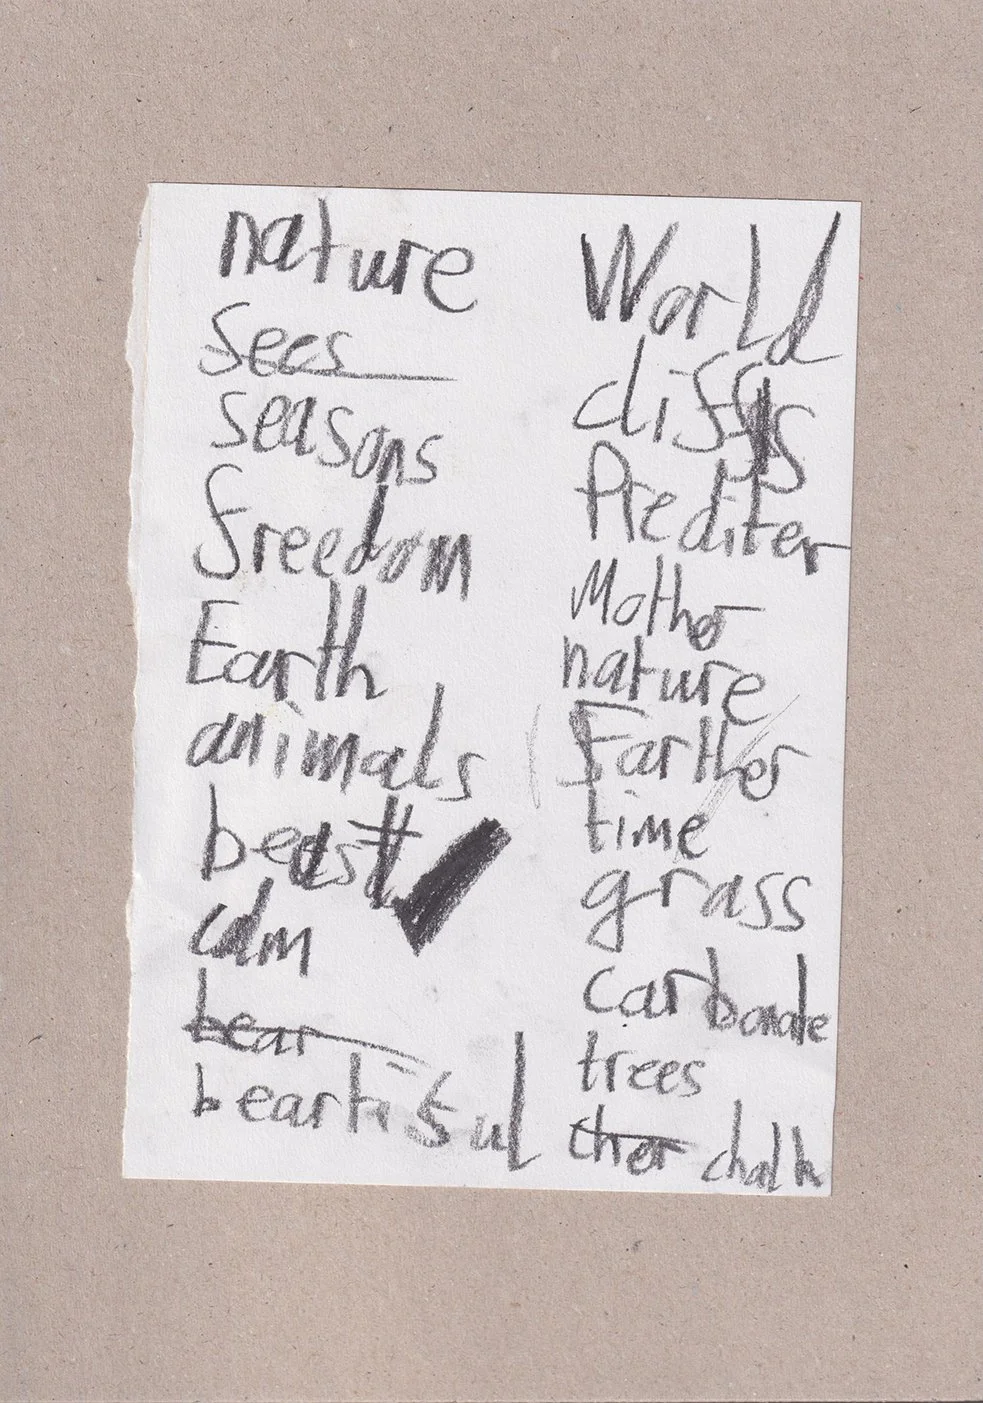 nature
sees
seasons
freedom
Earth
animals
beast
calm
bear
beartiful
World
cliffs
Prediter
Mother
nature
Farther
time
grass
carbonate
trees
chalk